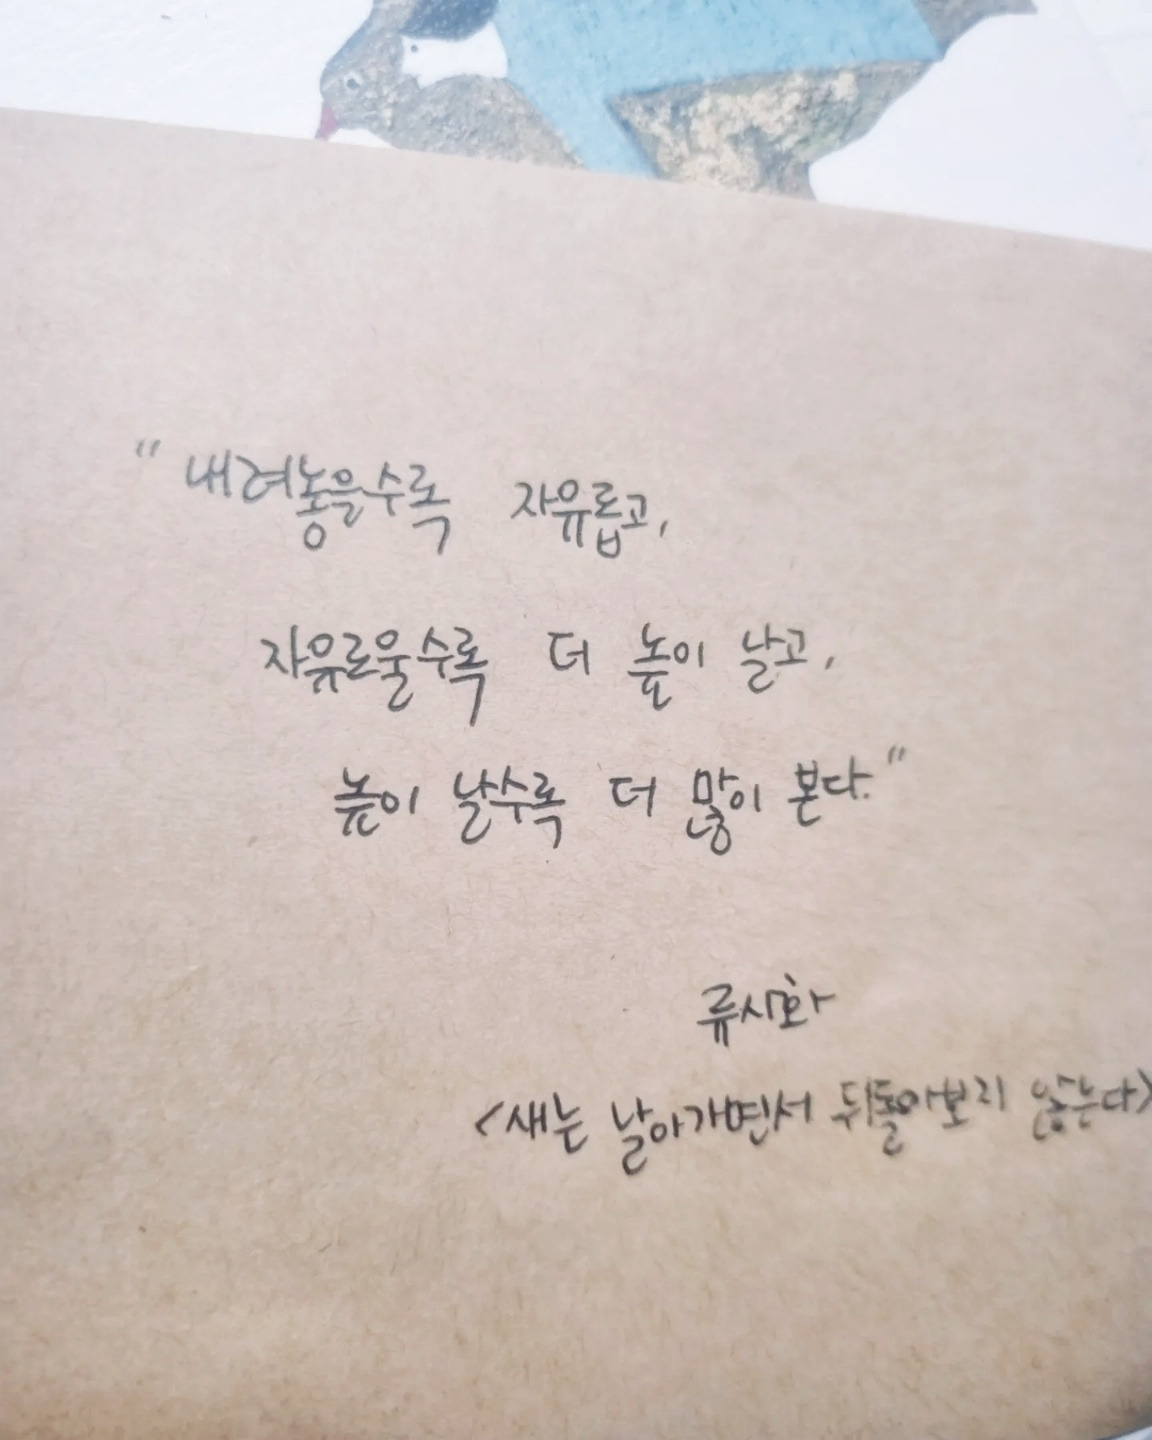 "내려놓을수록 자유롭고,
자유로울수록 더 높이 날고,
높이 날수록 더 많이 본다."
류시화
<새는 날아가면서 뒤돌아보지 않는다>